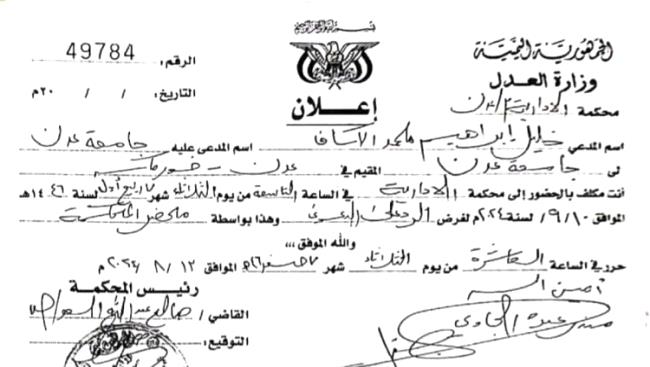 الجمهورية اليمنية
وزارة العدل
محكمة الادارية / عدن
الرقم: 49784
التاريخ: / / ٢٠م
إعلان
اسم المدعي خليل ابراهيم محمد اسم المدعى عليه جامعة عدن
لى جامعة عدن المقيم في عدن - خورمكسر
أنت مكلف بالحضور إلى محكمة الادارية في الساعة التاسعة من يوم الثلاثاء شهر ربيع أول لسنة ١٤٤٦هـ
الموافق ١٠/٩/ لسنة ٢٠٢٤م لغرض الرد على الدعوى وهذا بواسطة محضر المحكمة
والله الموفق ،،،
حرر في الساعة العاشرة من يوم الثلاثاء شهر صفر الموافق ١٣/ ٨/ ٢٠٢٤م
رئيس المحكمة
القاضي / صالح
أمين السر
التوقيع: